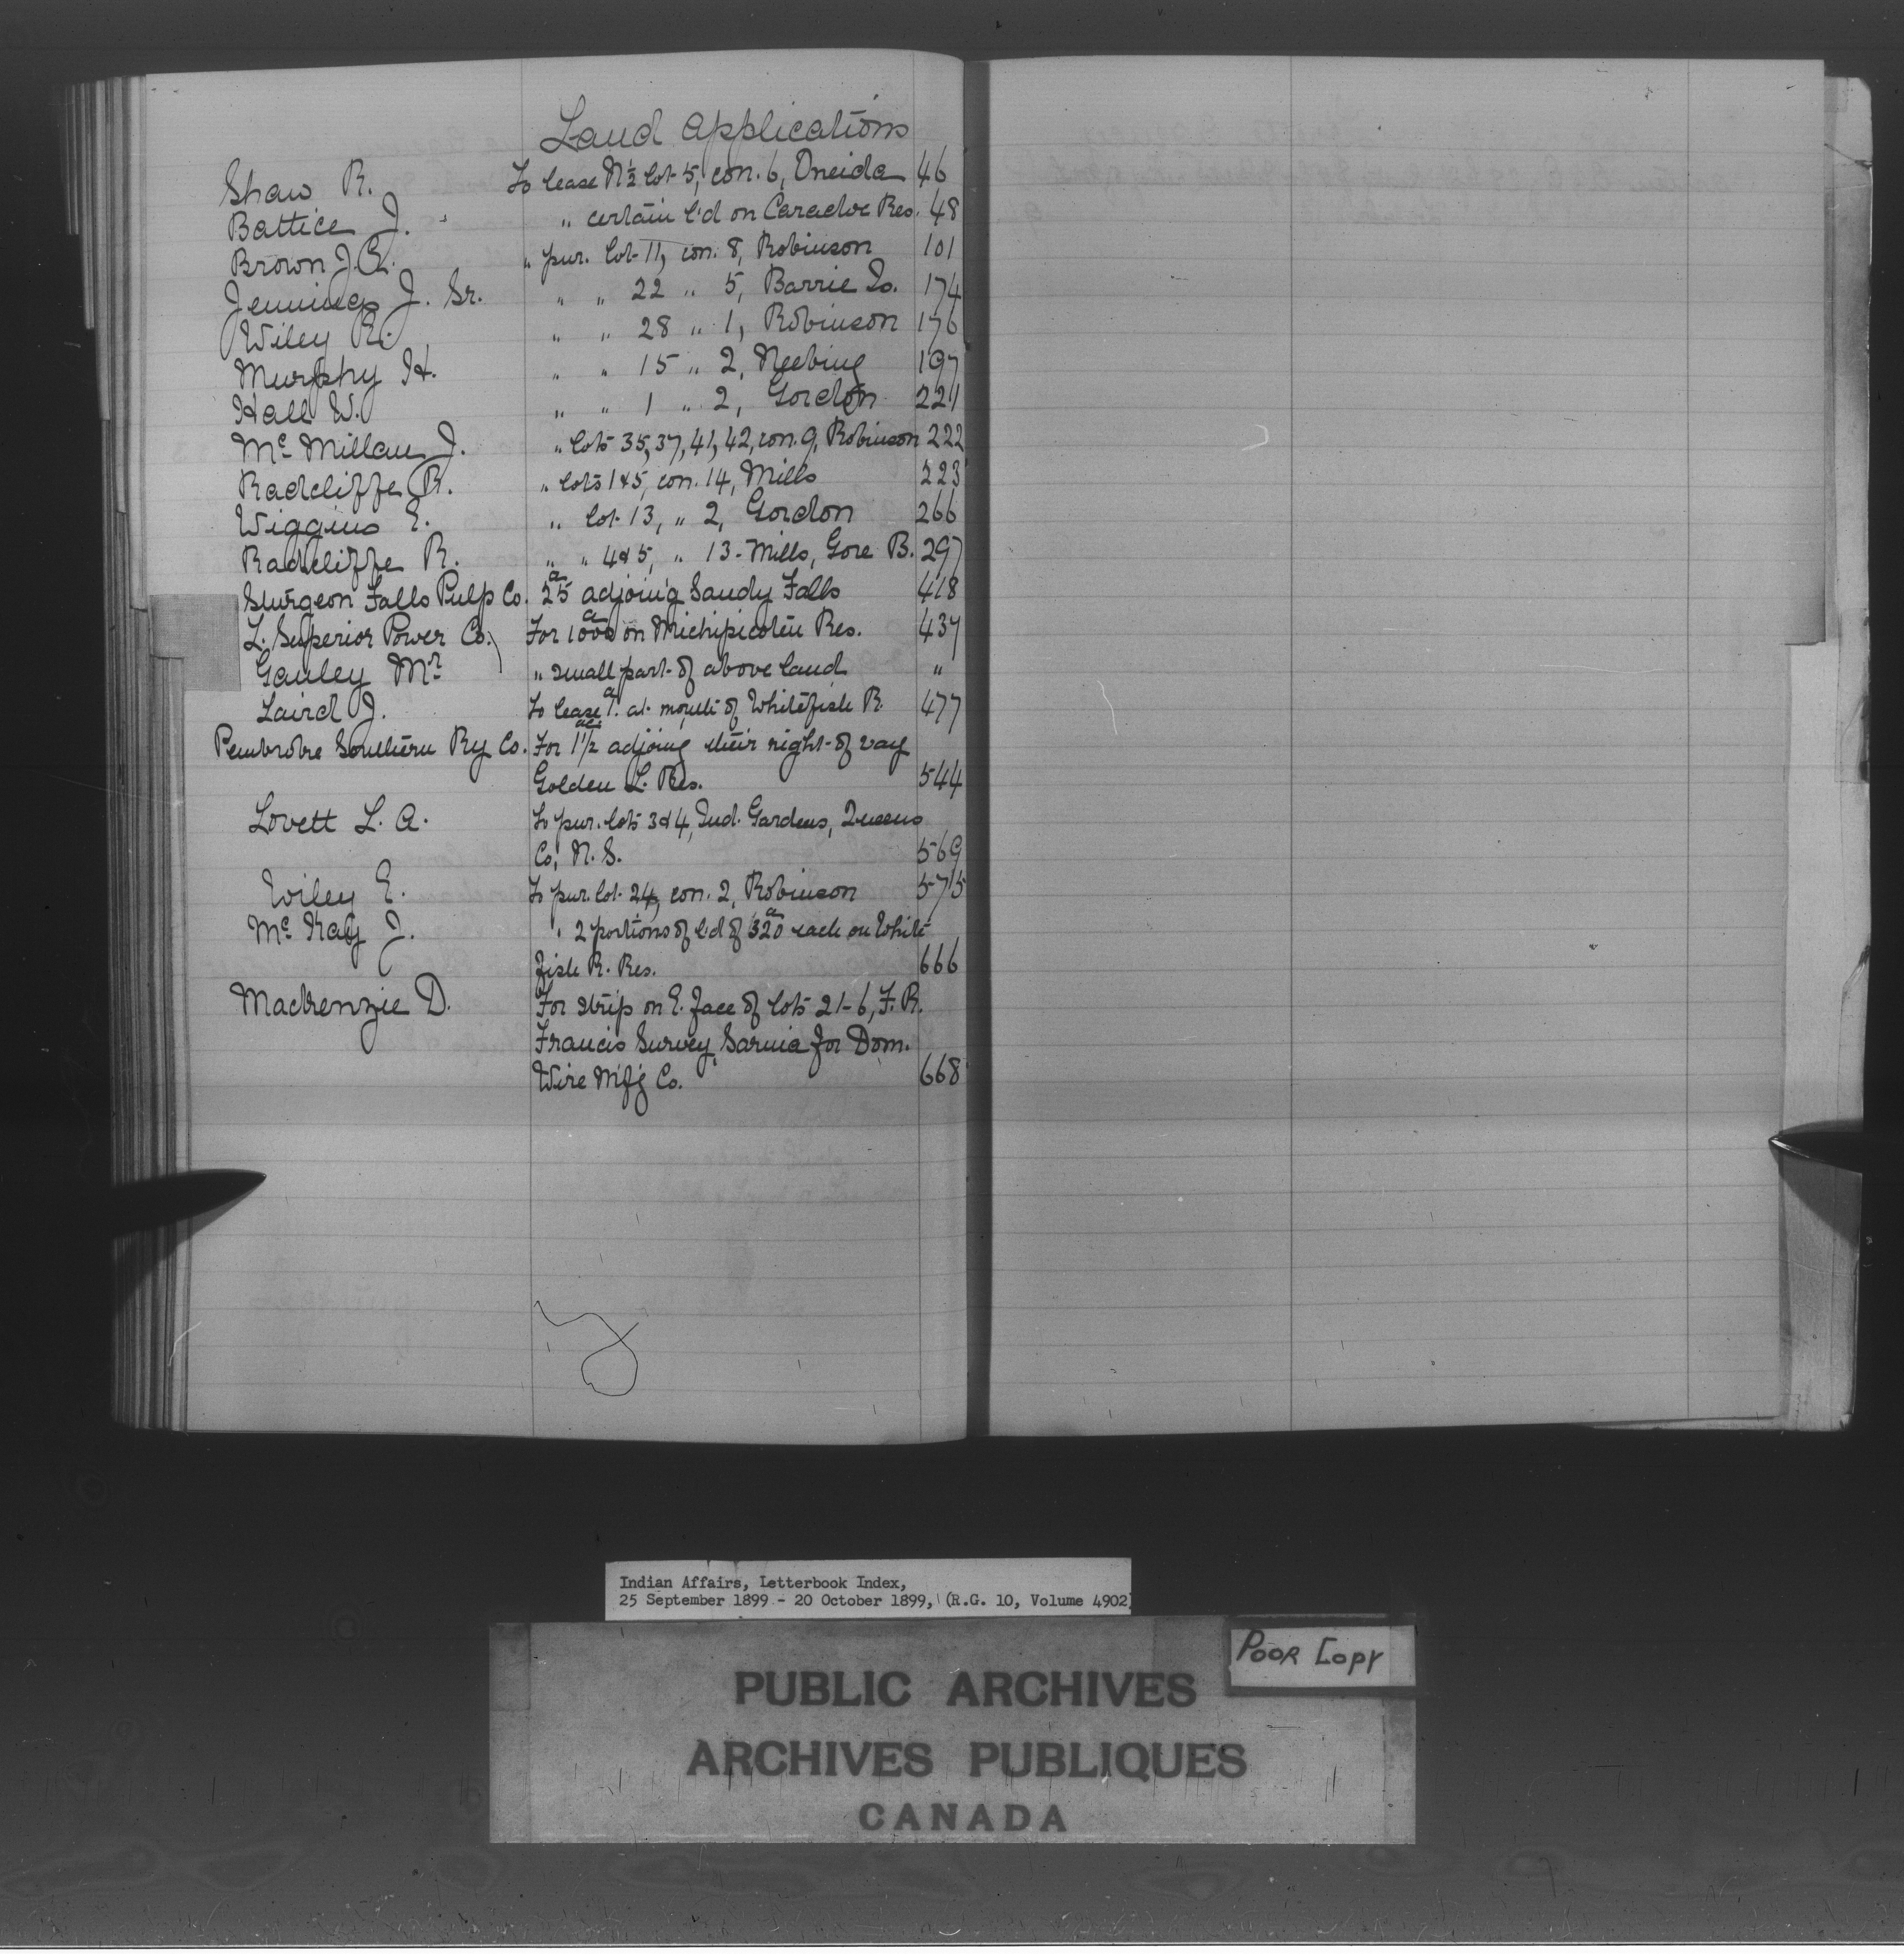 Land Applications
Shaw R. To lease N½ lot 5, con. 6, Oneida 46
Battice J. " certain l'd on Caradoc Res. 48
Brown J.A. " pur. lot 11, con. 8, Robinson 101
Jennings J. Sr. " " 22 " 5, Barrie Is. 174
Wiley R. " " 28 " 1, Robinson 176
Murphy H. " " 15 " 2, Neebing 197
Hall W. " " 1 " 2, Gordon 221
McMillan J. " lots 35, 37, 41, 42, con. 9, Robinson 222
Radcliffe R. " lots 1 & 5, con. 14, Mills 223
Wiggins E. " lot 13, " 2, Gordon 266
Radcliffe R. " " 4 & 5, " 13 - Mills, Gore B. 297
Sturgeon Falls Pulp Co. 25a adjoing Sandy Falls 418
L. Superior Power Co. For 1000a on Michipicoten Res. 437
Ganley Mr " small part of above land "
Laird J. To lease 1a. at mouth of Whitefish R. 477
Pembroke Southern Ry Co. For 1½ac. adjoing their right of way
Golden L. Res. 544
Lovett L. A. To pur. lots 3 & 4, Ind. Gardens, Queens
Co, N. S. 569
Wiley E. To pur. lot 24, con. 2, Robinson 575
McKay J. " 2 portions of l'd of 320a each on White
fish R. Res. 666
Mackenzie D. For strip on E. face of lots 21-6, F. R.
Francis Survey, Sarnia for Dom.
Wire M'f'g Co. 668
Indian Affairs, Letterbook Index,
25 September 1899 - 20 October 1899, (R.G. 10, Volume 4902)
POOR COPY
PUBLIC ARCHIVES
ARCHIVES PUBLIQUES
CANADA